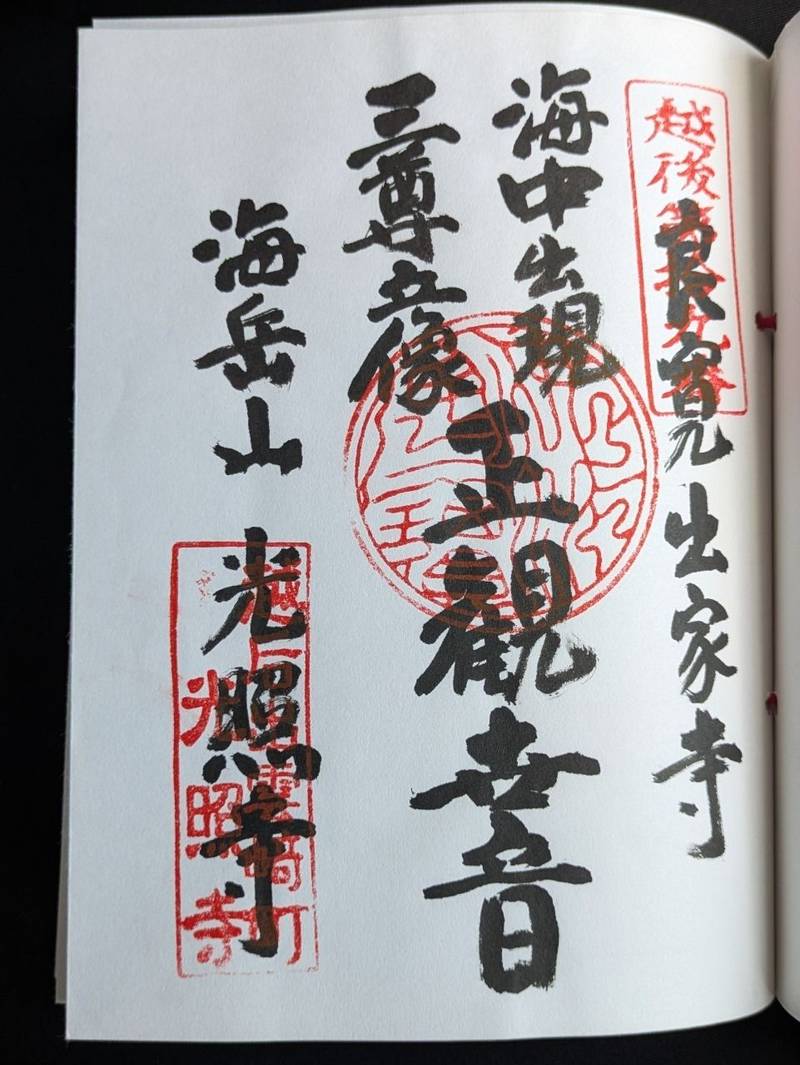 越後第
良寛出家寺
海中出現
三尊立像
正観世音
海岳山 光照寺
雲崎町
光照寺